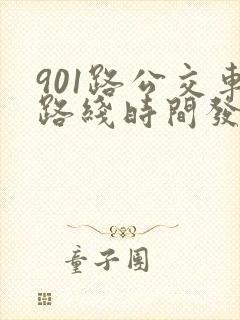 901路公交車
路綫時間發
童子團